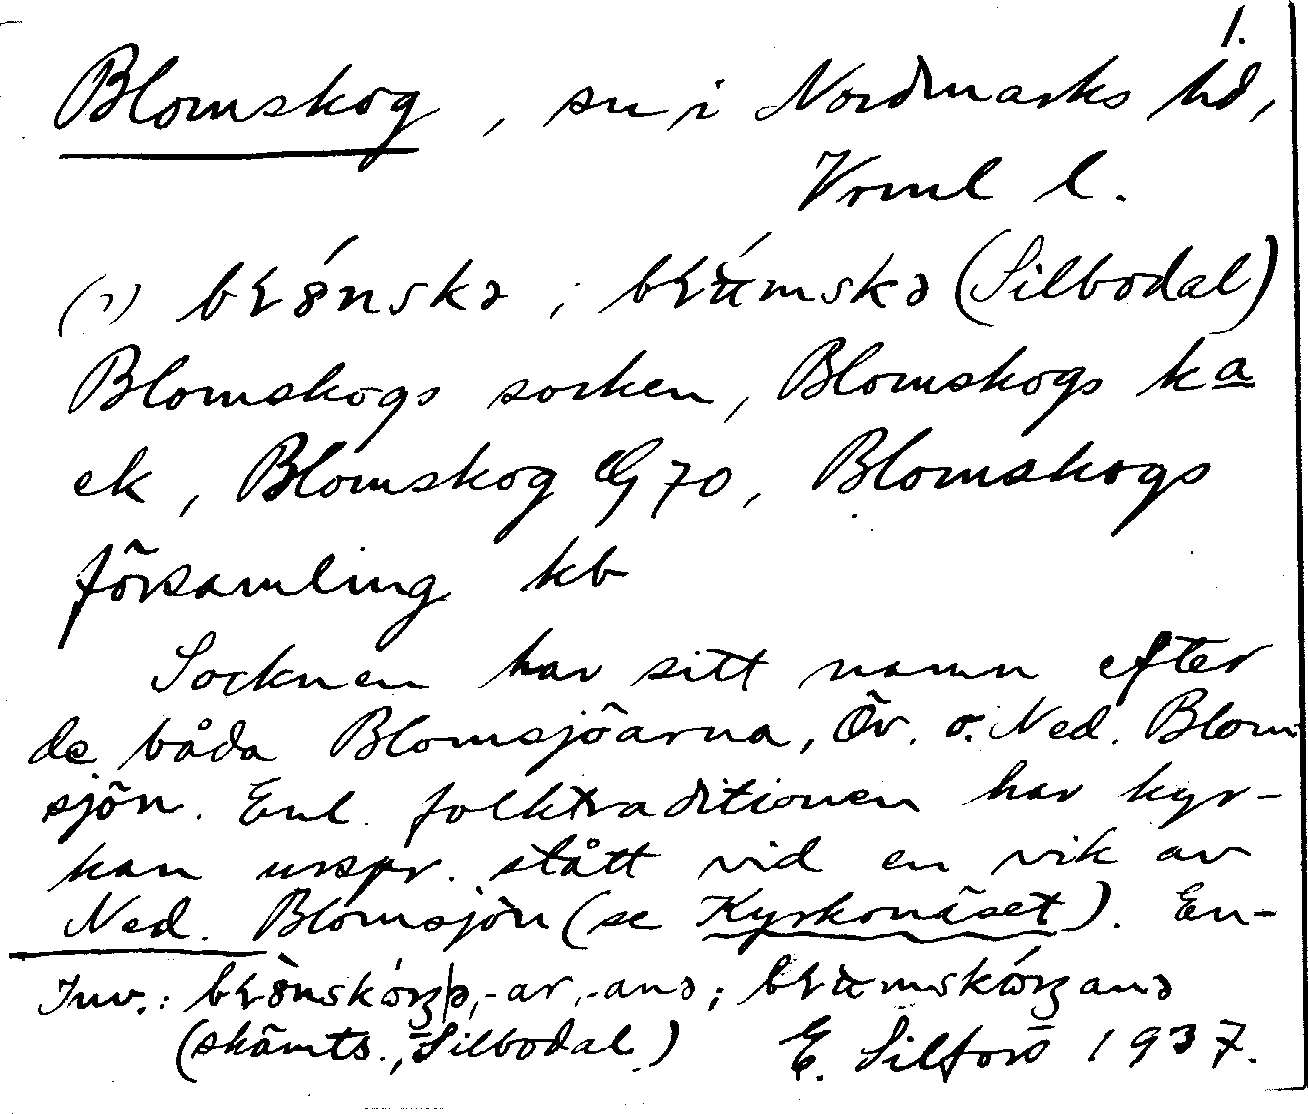 1.
Blomskog, sn i Nordmarks hd,
Vrml l.
(1) brǿnskə ; brɑ́mskə (Silbodal)
Blomskogs socken, Blomskogs ka
ek, Blomskog G 70, Blomskogs
församling kb
Socknen har sitt namn efter
de båda Blomsjöarna, Öv. o. Ned. Blom-
sjön. Enl. folktraditionen har kyr-
kan urspr. stått vid en vik av
Ned. Blomsjön (se Kyrkonäset). En-
Inv.: -ar, -anə;
(skämts., Silbodal) E. Silfors 1937.